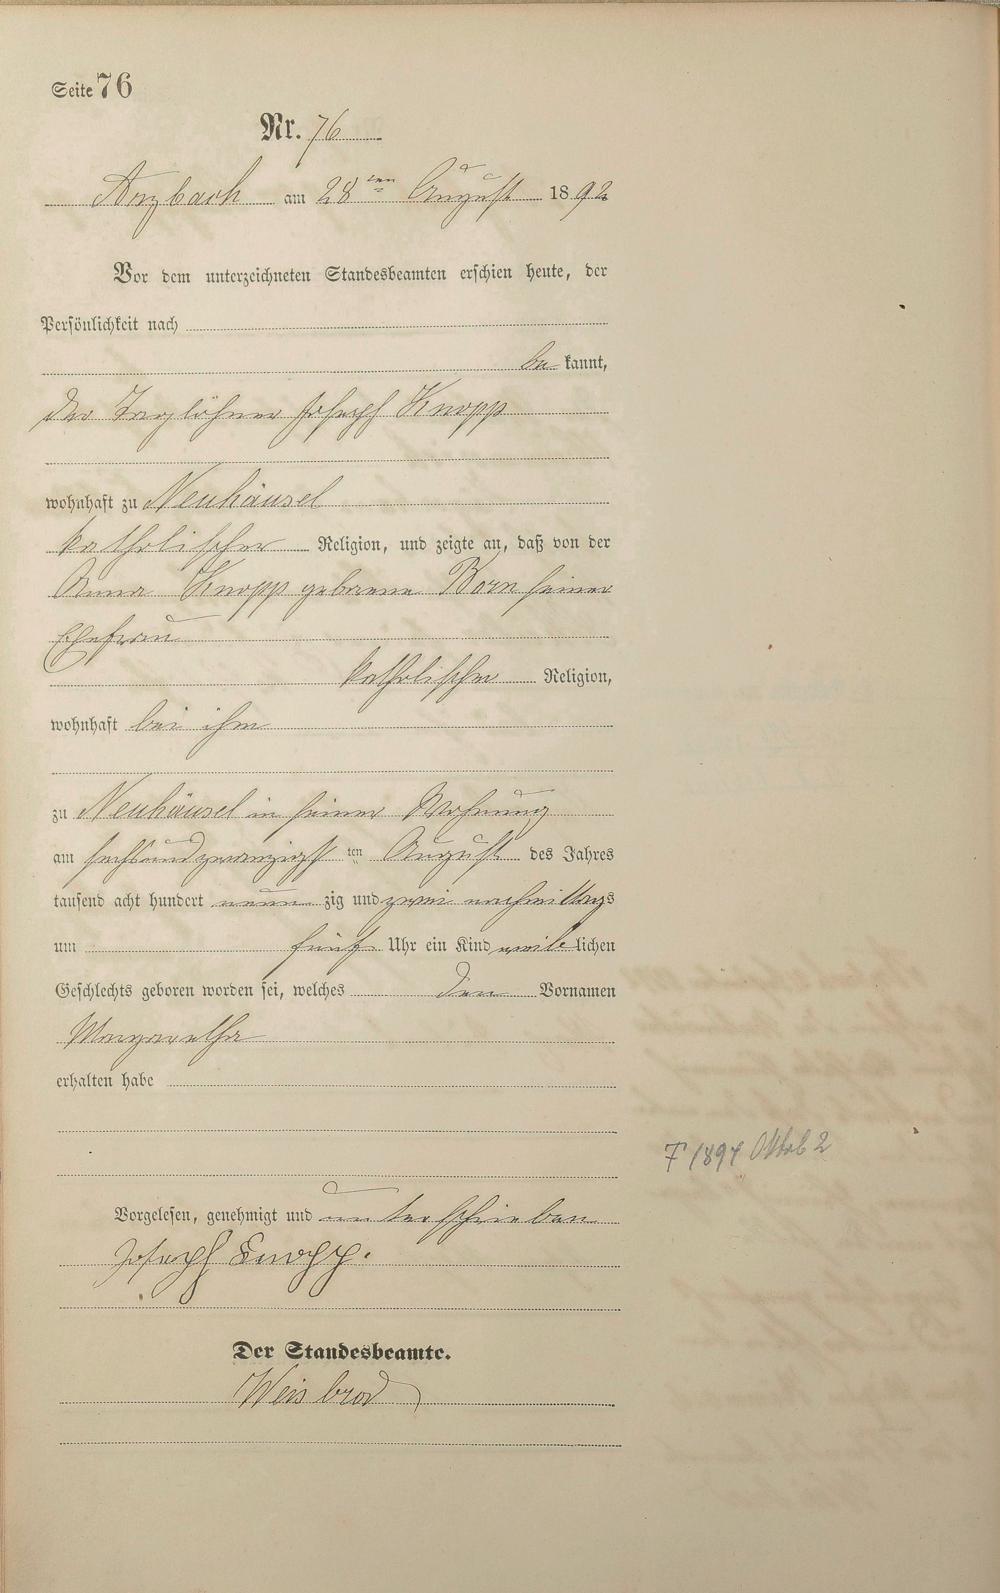 Seite 76
Nr. 76
Arzbach am 28ten August 1892
Vor dem unterzeichneten Standesbeamten erschien heute, der
Persönlichkeit nach
be kannt,
der Taglöhner Joseph Knopp
wohnhaft zu Neuhäusel
katholischer Religion, und zeigte an, daß von der
Anna Knopp geborene Born seiner
Ehefrau
katholischer Religion,
wohnhaft bei ihm
zu Neuhäusel in seiner Wohnung
am sechsundzwanzigsten August des Jahres
tausend acht hundert neun zig und zwei nachmittags
um fünf Uhr ein Kind weib lichen
Geschlechts geboren worden sei, welches den Vornamen
Margaretha
erhalten habe
Ŧ 1894 Oktob 2
Vorgelesen, genehmigt und unterschrieben
Joseph Knopp.
Der Standesbeamte.
Weisbrod